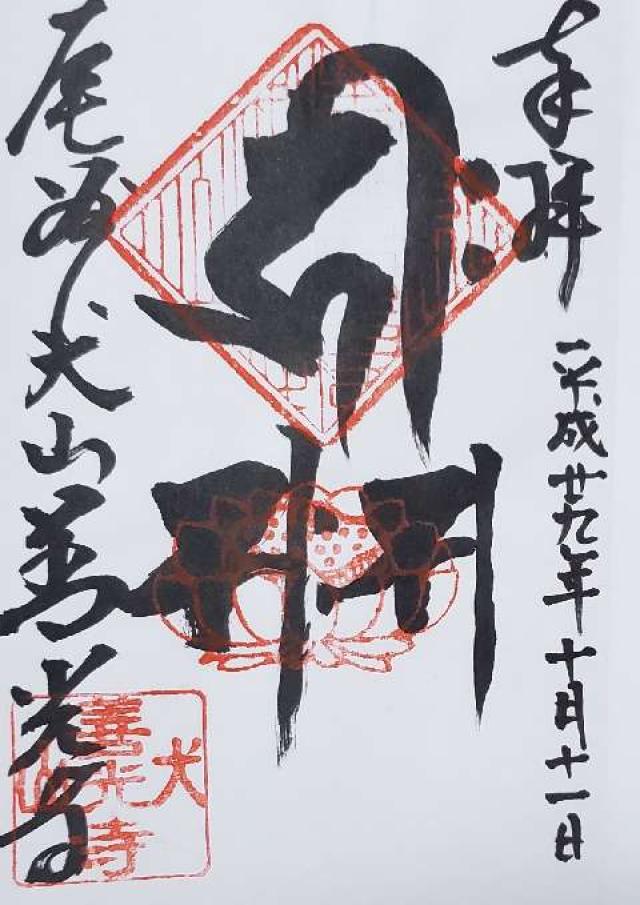 奉拝 平成廿九年十月十一日
尾州犬山善光寺
犬
善光寺
山